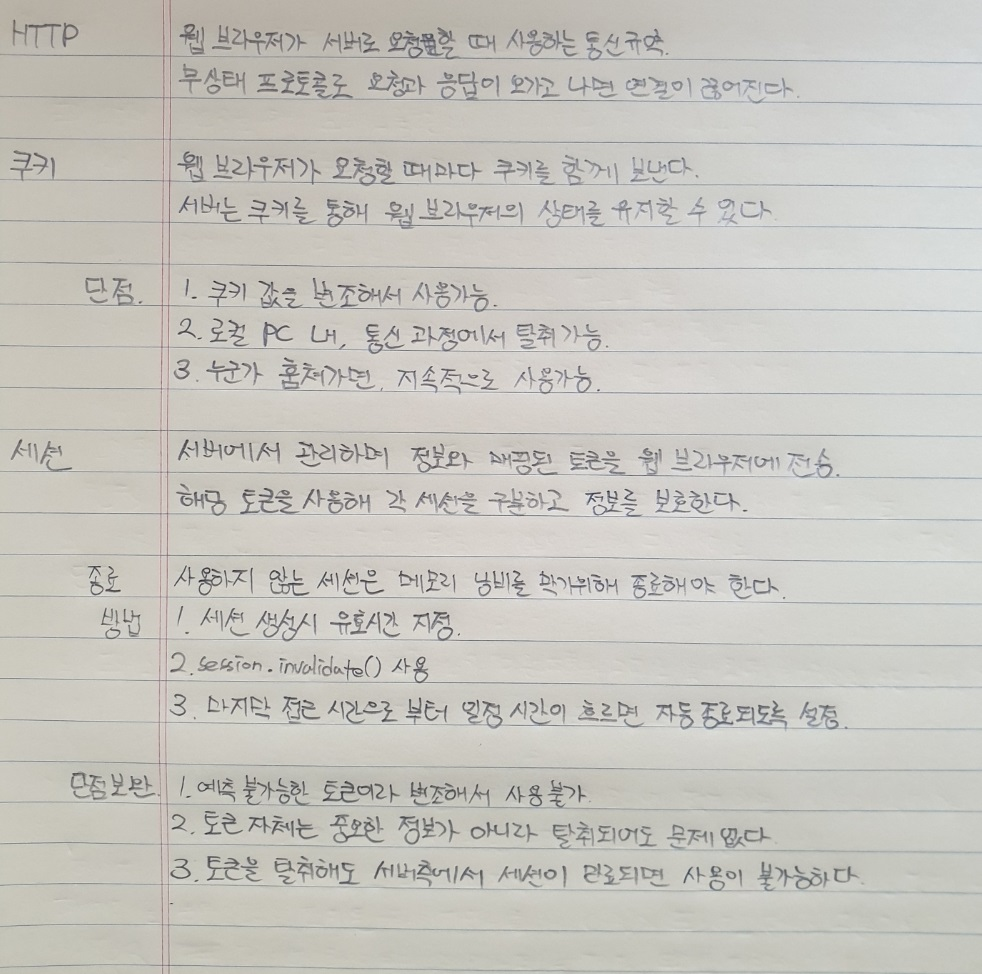 HTTP 웹 브라우저가 서버로 요청할 때 사용하는 통신규약.
무상태 프로토콜로 요청과 응답이 오가고 나면 연결이 끊어진다.
쿠키 웹 브라우저가 요청할 때마다 쿠키를 함께 보낸다.
서버는 쿠키를 통해 웹 브라우저의 상태를 유지할 수 있다
단점. 1. 쿠키 값을 변조해서 사용가능.
2. 로컬 PC 내, 통신 과정에서 탈취 가능.
3. 누군가 훔쳐가면, 지속적으로 사용가능.
세션 서버에서 관리하며 정보와 매핑된 토큰을 웹 브라우저에 전송.
해당 토큰을 사용해 각 세션을 구분하고 정보를 보호한다.
종료 사용하지 않는 세션은 메모리 낭비를 막기위해 종료해야 한다.
방법 1. 세션 생성시 유효시간 지정.
2. session.invalidate() 사용
3. 마지막 접근 시간으로 부터 일정 시간이 흐르면 자동종료되도록 설정.
단점보완. 1. 예측 불가능한 토큰이라 변조해서 사용불가.
2. 토큰 자체는 중요한 정보가 아니라 탈취되어도 문제 없다.
3. 토큰을 탈취해도 서버측에서 세션이 만료되면 사용이 불가능하다.